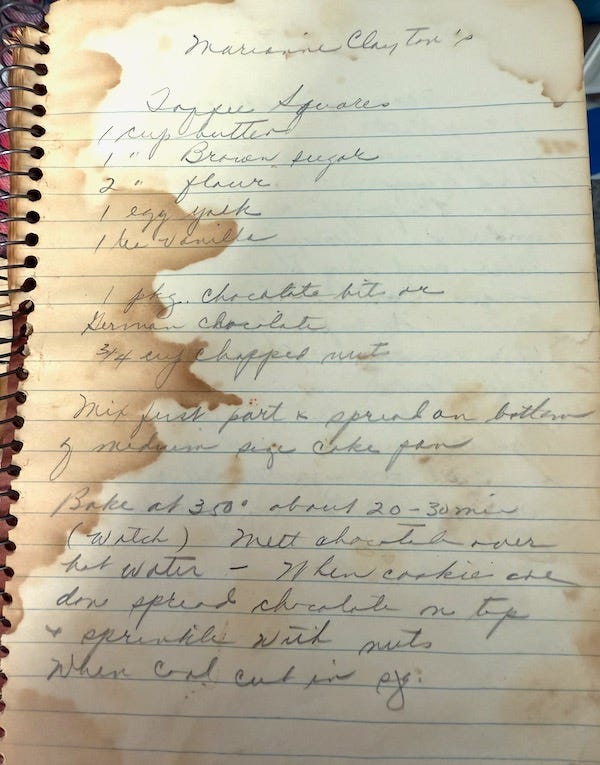 Marianne Clayton's
Toffee Squares
1 cup butter
1 " Brown sugar
2 " flour
1 egg yolk
1 tea vanilla
1 pkg. chocolate bits or
German chocolate
3/4 cup chopped nuts
Mix first part & spread on bottom
of medium size cake pan
Bake at 350° about 20-30 min
(Watch) Melt chocolate over
hot water - When cookies are
done spread chocolate on top
& sprinkle with nuts
When cool cut in sq.